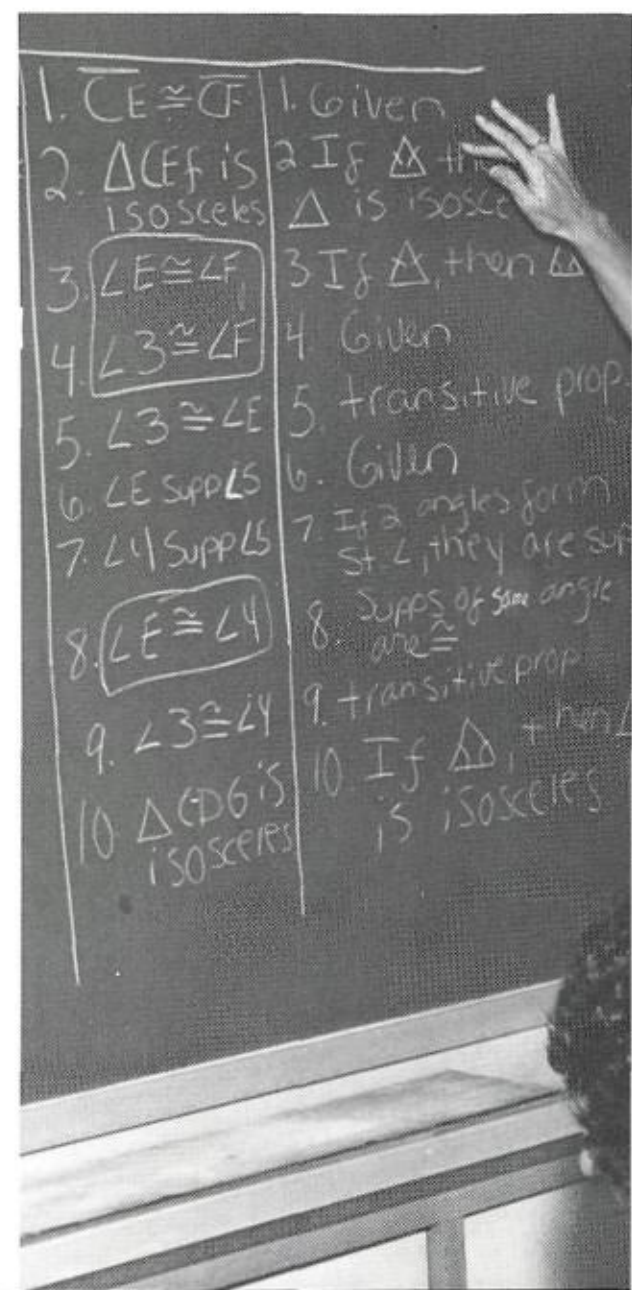 1. CE ≅ CF 1. Given
2. △CEF is 2 If △ 
isosceles △ is
3. ∠E ≅ ∠F, 3 If △, then △
4. ∠3 ≅ ∠F 4. Given
5. ∠3 ≅ ∠E 5. transitive prop.
6. ∠E supp ∠5 6. Given
7. ∠4 supp ∠5 7. If 2 angles form
St. ∠, they are
8. ∠E ≅ ∠4 8. Supps of same angle
are ≅
9. ∠3 ≅ ∠4 9. transitive prop
10 △CDG is 10 If △, then △
isosceles is isosceles